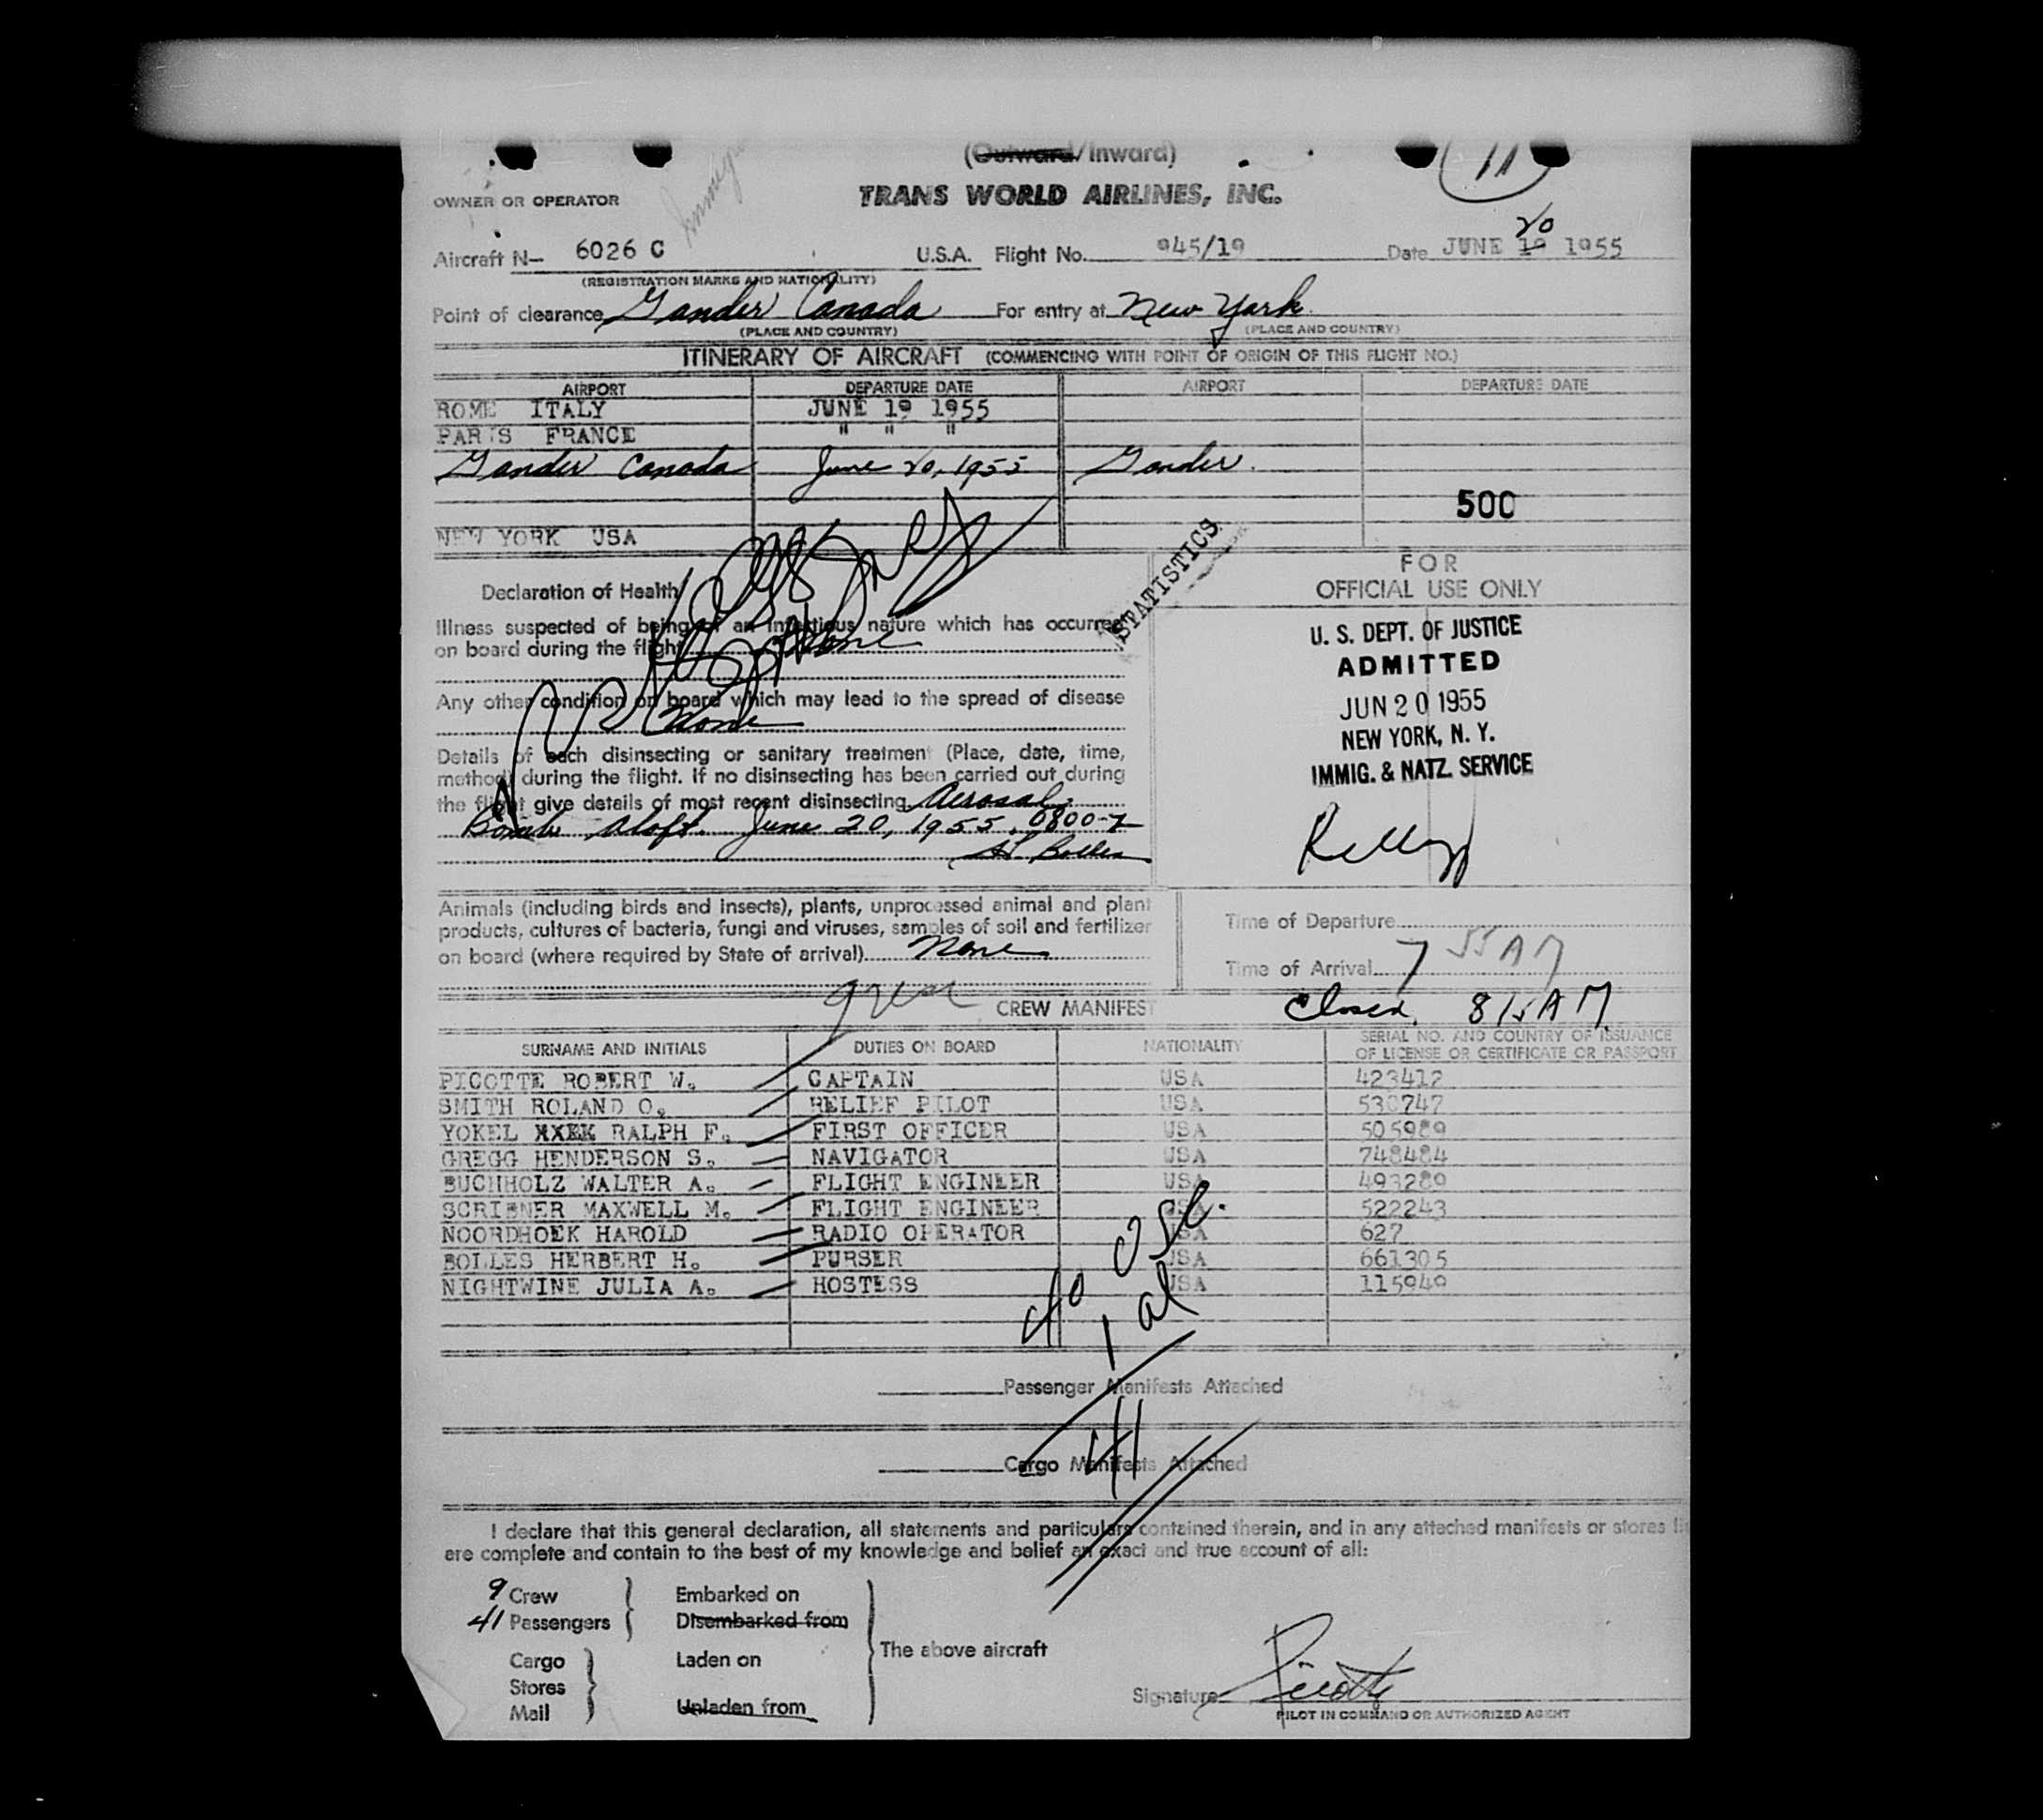 (Outward/Inward)
11
OWNER OR OPERATOR
TRANS WORLD AIRLINES, INC.
20
Aircraft N- 6026 C U.S.A. Flight No. 945/19 Date JUNE 19 1955
(REGISTRATION MARKS AND NATIONALITY)
Point of clearance Gander Canada For entry at New York
(PLACE AND COUNTRY) (PLACE AND COUNTRY)
ITINERARY OF AIRCRAFT (COMMENCING WITH POINT OF ORIGIN OF THIS FLIGHT NO.)
AIRPORT DEPARTURE DATE AIRPORT DEPARTURE DATE
ROME ITALY JUNE 19 1955
PARIS FRANCE " " "
Gander Canada June 20, 1955 Gander
500
NEW YORK USA
STATISTICS
FOR
OFFICIAL USE ONLY
Declaration of Health
Illness suspected of being of an infectious nature which has occurred
on board during the flight None
Any other condition on board which may lead to the spread of disease
None
Details of each disinsecting or sanitary treatment (Place, date, time,
method) during the flight. If no disinsecting has been carried out during
the flight give details of most recent disinsecting Aerosal
Bomb Aloft. June 20, 1955, 0800-Z
H. Bolles
U. S. DEPT. OF JUSTICE
ADMITTED
JUN 20 1955
NEW YORK, N. Y.
IMMIG. & NATZ. SERVICE
Kellogg
Animals (including birds and insects), plants, unprocessed animal and plant
products, cultures of bacteria, fungi and viruses, samples of soil and fertilizer
on board (where required by State of arrival) None
Time of Departure
Time of Arrival 7 55 AM
CREW MANIFEST
Closed 815 AM
SURNAME AND INITIALS DUTIES ON BOARD NATIONALITY SERIAL NO. AND COUNTRY OF ISSUANCE
OF LICENSE OR CERTIFICATE OR PASSPORT
PICOTTE ROBERT W. CAPTAIN USA 423412
SMITH ROLAND O. RELIEF PILOT USA 530747
YOKEL XXEK RALPH F. FIRST OFFICER USA 505989
GREGG HENDERSON S. NAVIGATOR USA 748484
BUCHHOLZ WALTER A. FLIGHT ENGINEER USA 493289
SCRIBNER MAXWELL M. FLIGHT ENGINEER USA 522243
NOORDHOEK HAROLD RADIO OPERATOR USA 627
BOLLES HERBERT H. PURSER USA 661305
NIGHTWINE JULIA A. HOSTESS USA 115949
40 USC.
1 al
41
Passenger Manifests Attached
Cargo Manifests Attached
I declare that this general declaration, all statements and particulars contained therein, and in any attached manifests or stores
are complete and contain to the best of my knowledge and belief an exact and true account of all:
9 Crew Embarked on
41 Passengers Disembarked from
The above aircraft
Cargo Laden on
Stores
Mail Unladen from
Signature Picotte
PILOT IN COMMAND OR AUTHORIZED AGENT